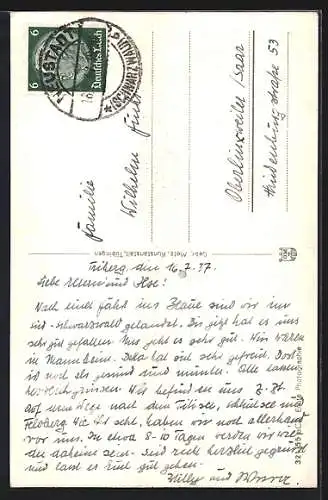 6 Deutsches Reich 6
NEUSTADT
(SCHWARZWALD)
Familie
Wilhelm
Oberlinxweiler/Saar
Hindenburgstraße 53
Gebr. Metz, Kunstanstalt, Tübingen
Triberg, den 16.7.37.
Liebe Eltern und Ilse!
Nach einer Fahrt ins Blaue sind wir im
süd-Schwarzwald gelandet. Bis jetzt hat es uns
sehr gut gefallen. Uns geht es sehr gut. Wir waren
in Mannheim. hat sich sehr gefreut. Dort
ist noch alles gesund und munter. Alle lassen
herzlich grüssen. Wir befinden uns z. Zt.
auf dem Wege nach dem Titisee, Schluchsee und
Feldberg. Ihr seht, haben wir noch allerhand
vor uns. In etwa 8-10 Tagen werden wir wieder
daheim sein. seid recht herzlich gegrüsst
und lasst es Euch gut gehen.
Willy und
Photographie